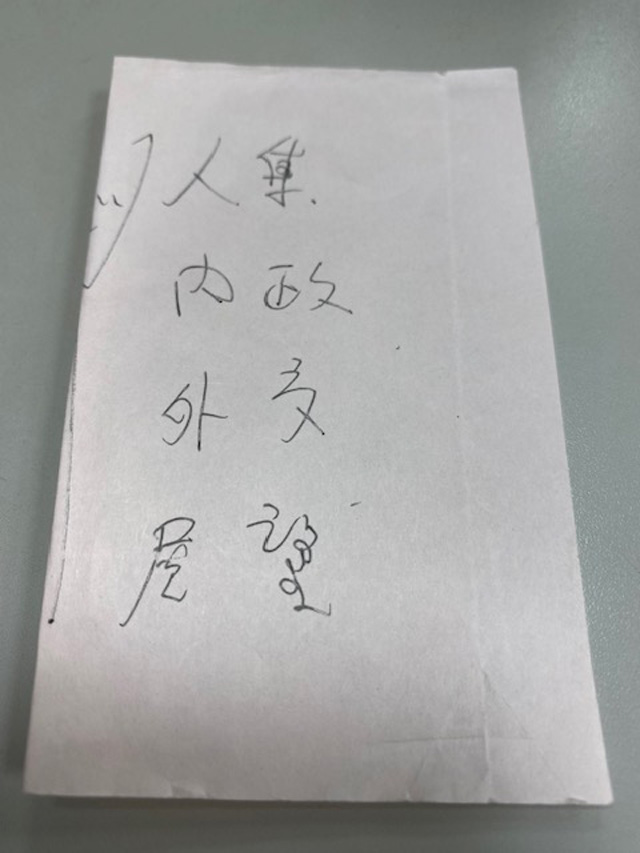 人集
内政
外交
展望